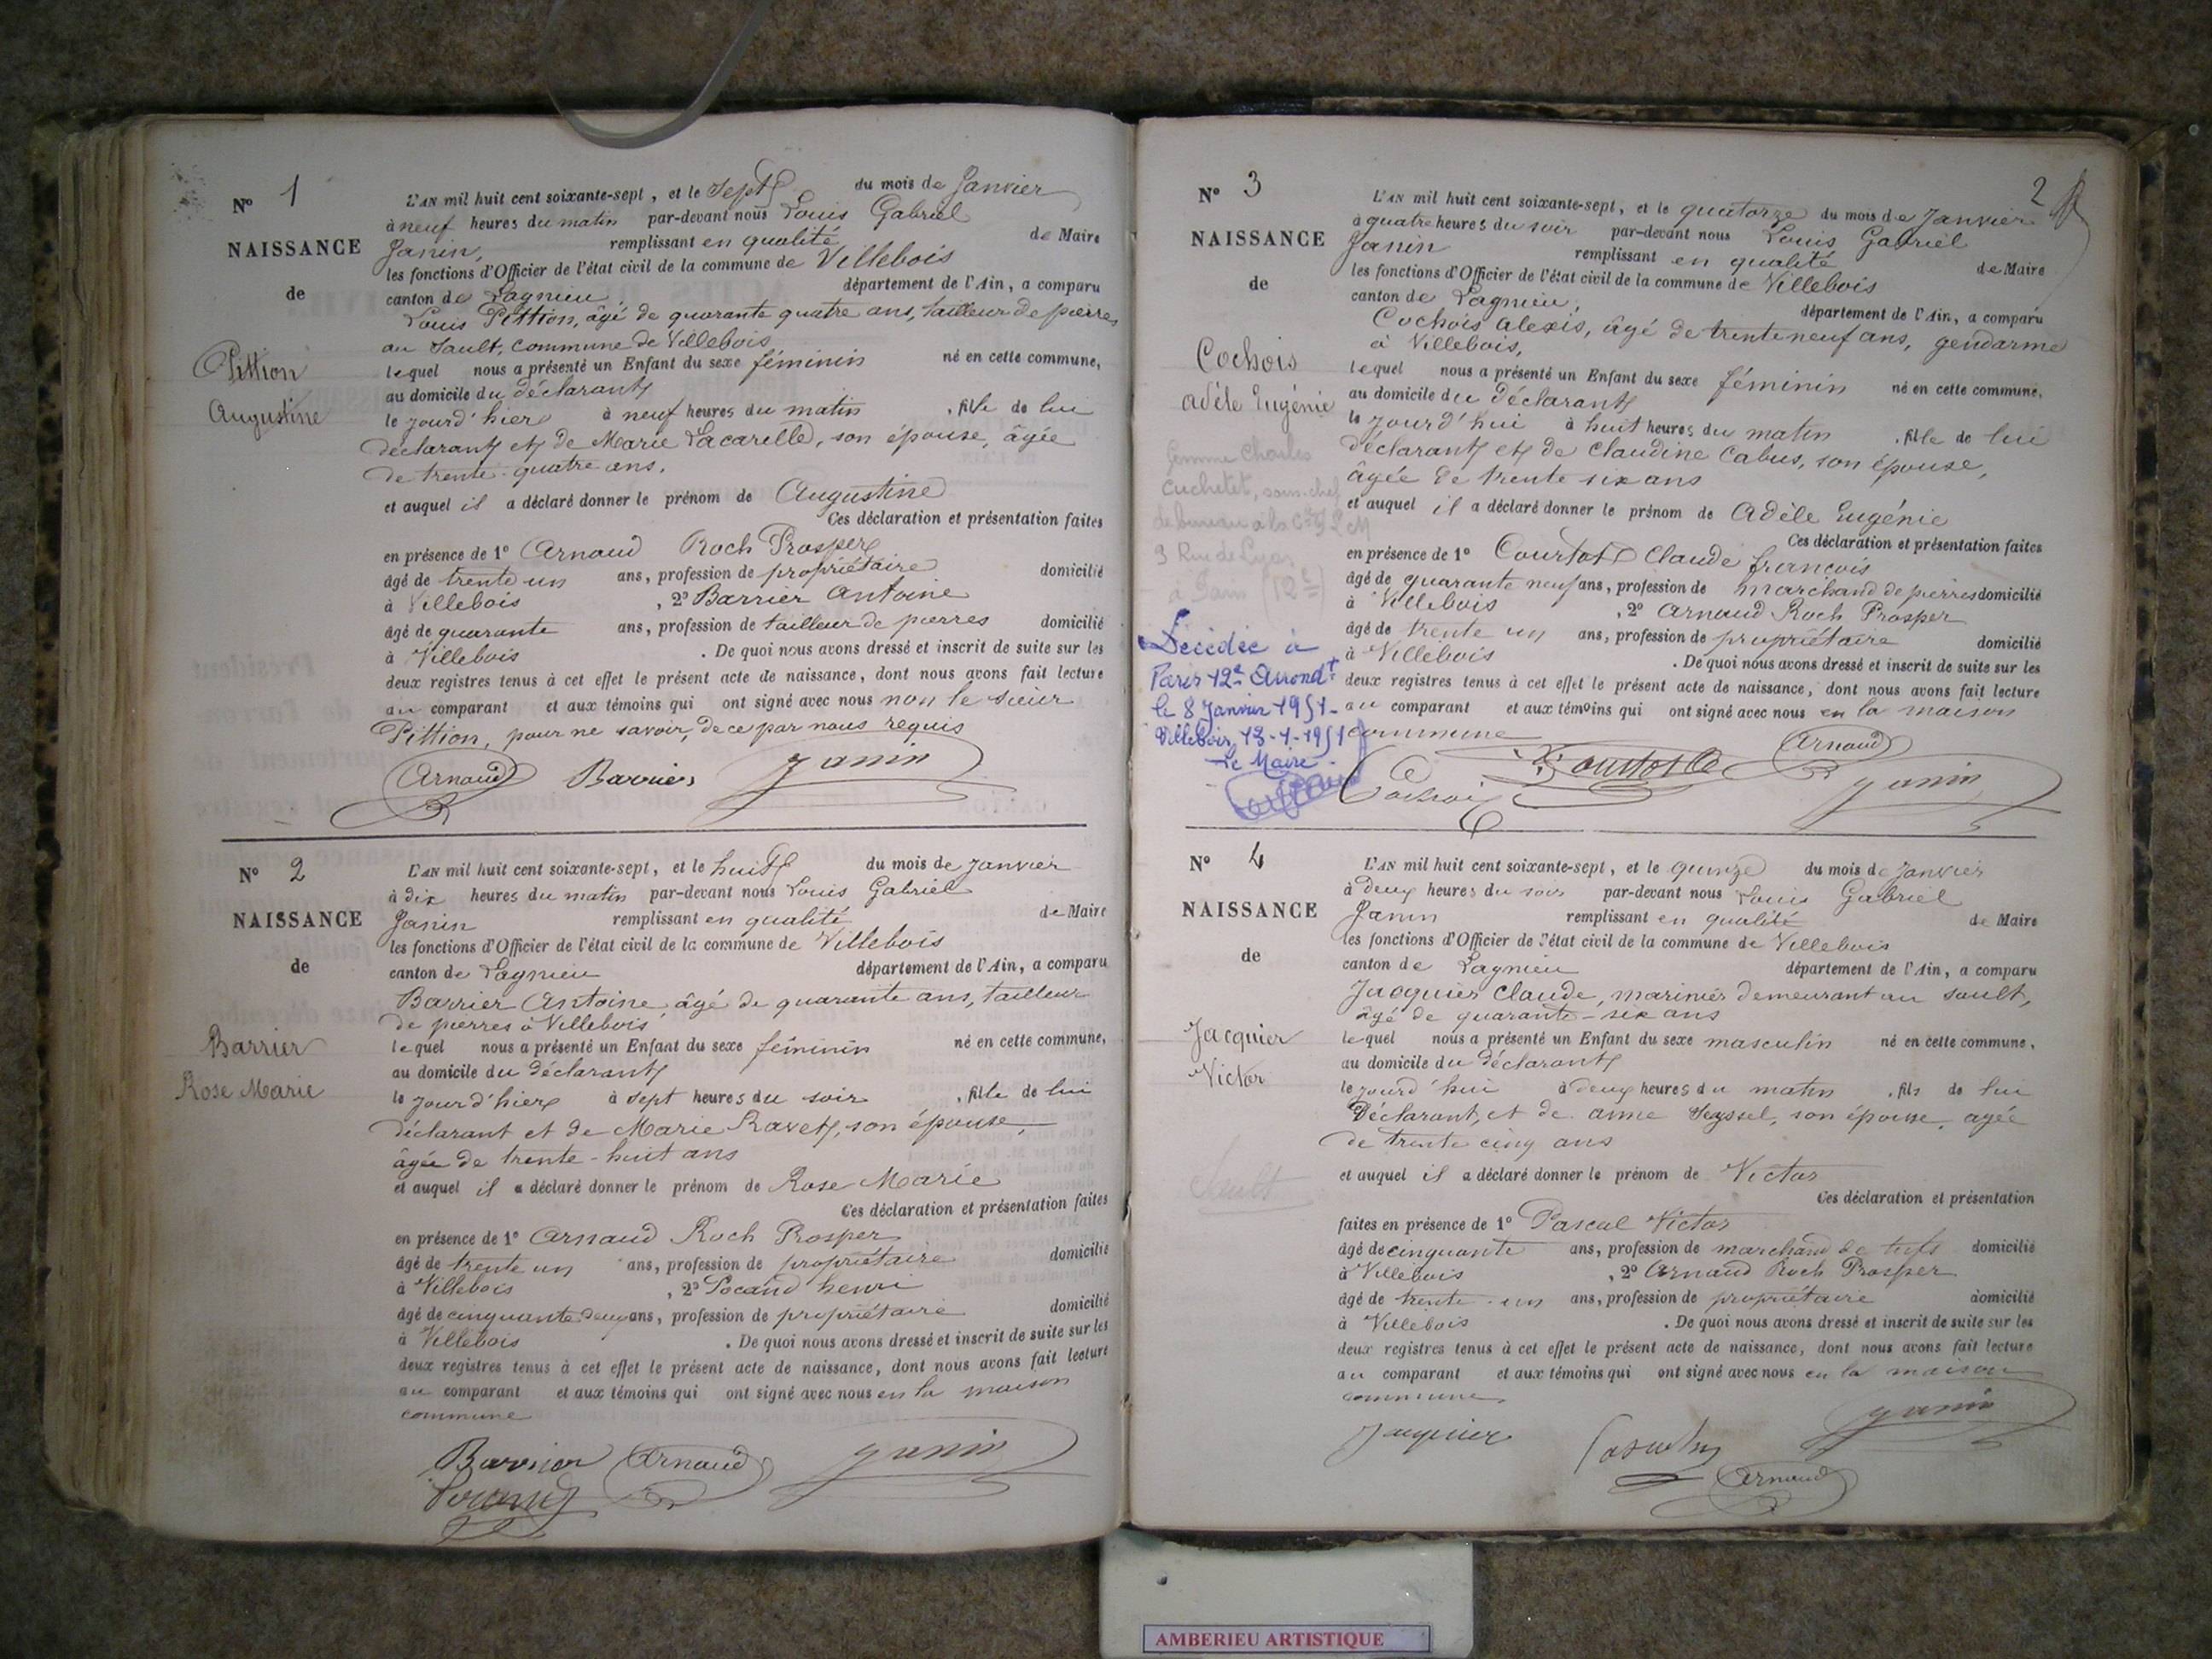 N° 1
NAISSANCE
de
Pittion
Augustine
L'AN mil huit cent soixante-sept, et le sept du mois de Janvier
à neuf heures du matin par-devant nous Louis Gabriel
Janin, remplissant en qualité de Maire
les fonctions d'Officier de l'état civil de la commune de Villebois
canton de Lagnieu département de l'Ain, a comparu
Louis Pittion, âgé de quarante quatre ans, tailleur de pierres
au Sault, commune de Villebois
lequel nous a présenté un Enfant du sexe féminin né en cette commune,
au domicile du déclarant
le jourd'hier à neuf heures du matin, fille de lui
déclarant et de Marie Lacarelle, son épouse, âgée
de trente-quatre ans.
et auquel il a déclaré donner le prénom de Augustine
Ces déclaration et présentation faites
en présence de 1° Arnaud Roch Prosper
âgé de trente un ans, profession de propriétaire domicilié
à Villebois, 2° Barrier Antoine
âgé de quarante ans, profession de tailleur de pierres domicilié
à Villebois. De quoi nous avons dressé et inscrit de suite sur les
deux registres tenus à cet effet le présent acte de naissance, dont nous avons fait lecture
au comparant et aux témoins qui ont signé avec nous non le sieur
Pittion, pour ne savoir, de ce par nous requis
Arnaud Barrier Janin
N° 2
NAISSANCE
de
Barrier
Rose Marie
L'AN mil huit cent soixante-sept, et le huit du mois de Janvier
à dix heures du matin par-devant nous Louis Gabriel
Janin remplissant en qualité de Maire
les fonctions d'Officier de l'état civil de la commune de Villebois
canton de Lagnieu département de l'Ain, a comparu
Barrier Antoine, âgé de quarante ans, tailleur
de pierres à Villebois,
lequel nous a présenté un Enfant du sexe féminin né en cette commune,
au domicile du déclarant
le jourd'hier à sept heures du soir, fille de lui
déclarant et de Marie Ravet, son épouse,
âgée de trente-huit ans
et auquel il a déclaré donner le prénom de Rose Marie
Ces déclaration et présentation faites
en présence de 1° Arnaud Roch Prosper
âgé de trente un ans, profession de propriétaire domicilié
à Villebois, 2° Pocand henri
âgé de cinquante deux ans, profession de propriétaire domicilié
à Villebois. De quoi nous avons dressé et inscrit de suite sur les
deux registres tenus à cet effet le présent acte de naissance, dont nous avons fait lecture
au comparant et aux témoins qui ont signé avec nous en la maison
commune
Barrier Arnaud Janin
Pocand
2
N° 3
NAISSANCE
de
Cochois
Adèle Eugénie
femme Charles
Cuchetet, sous-chef
de bureau à la
9 Rue de Lyon
à Paris (12e)
Décédée à
Paris 12e Arrondt
le 8 Janvier 1951-
Villebois, 13-1-1951
Le Maire
L'AN mil huit cent soixante-sept, et le quatorze du mois de Janvier
à quatre heures du soir par-devant nous Louis Gabriel
Janin remplissant en qualité de Maire
les fonctions d'Officier de l'état civil de la commune de Villebois
canton de Lagnieu, département de l'Ain, a comparu
Cochois Alexis, âgé de trente neuf ans, gendarme
à Villebois,
lequel nous a présenté un Enfant du sexe féminin né en cette commune,
au domicile du déclarant
le jourd'hui à huit heures du matin, fille de lui
déclarant et de Claudine Cabus, son épouse,
âgée de trente six ans
et auquel il a déclaré donner le prénom de Adèle Eugénie
Ces déclaration et présentation faites
en présence de 1° Courtot Claude françois
âgé de quarante neuf ans, profession de marchand de pierres domicilié
à Villebois, 2° Arnaud Roch Prosper
âgé de trente un ans, profession de propriétaire domicilié
à Villebois. De quoi nous avons dressé et inscrit de suite sur les
deux registres tenus à cet effet le présent acte de naissance, dont nous avons fait lecture
au comparant et aux témoins qui ont signé avec nous en la maison
commune
Cochois Courtot Arnaud Janin
N° 4
NAISSANCE
de
Jacquier
Victor
Sault
L'AN mil huit cent soixante-sept, et le quinze du mois de Janvier
à deux heures du soir par-devant nous Louis Gabriel
Janin remplissant en qualité de Maire
les fonctions d'Officier de l'état civil de la commune de Villebois
canton de Lagnieu département de l'Ain, a comparu
Jacquier Claude, marinier demeurant au sault,
âgé de quarante-six ans
lequel nous a présenté un Enfant du sexe masculin né en cette commune,
au domicile du déclarant
le jourd'hui à deux heures du matin, fils de lui
Déclarant, et de anne Seyssel, son épouse, agée
de trente cinq ans
et auquel il a déclaré donner le prénom de Victor
Ces déclaration et présentation
faites en présence de 1° Pascal Victor
âgé de cinquante ans, profession de marchand de tufs domicilié
à Villebois, 2° Arnaud Roch Prosper
âgé de trente-un ans, profession de propriétaire domicilié
à Villebois. De quoi nous avons dressé et inscrit de suite sur les
deux registres tenus à cet effet le présent acte de naissance, dont nous avons fait lecture
au comparant et aux témoins qui ont signé avec nous en la maison
commune
Jacquier Janin
Arnaud
AMBERIEU ARTISTIQUE